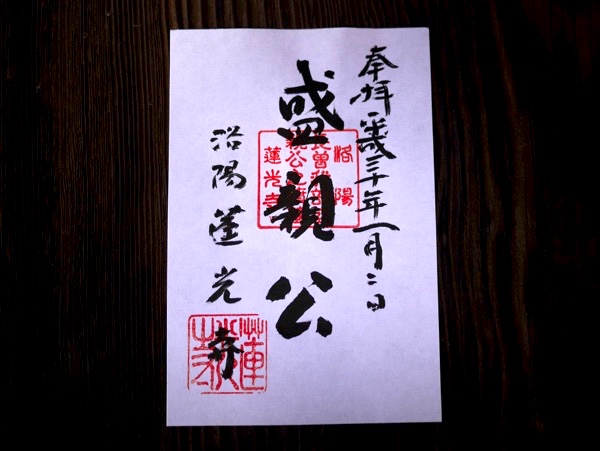 奉拝 平成三十年一月二日
盛親公
洛陽
長曽我部盛
親公之墓所
蓮光寺
洛陽 蓮光寺